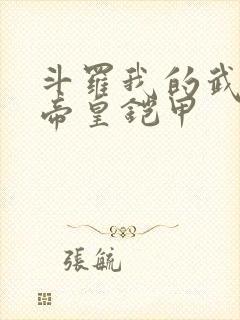 斗羅我的武
帝皇铠甲
張毓